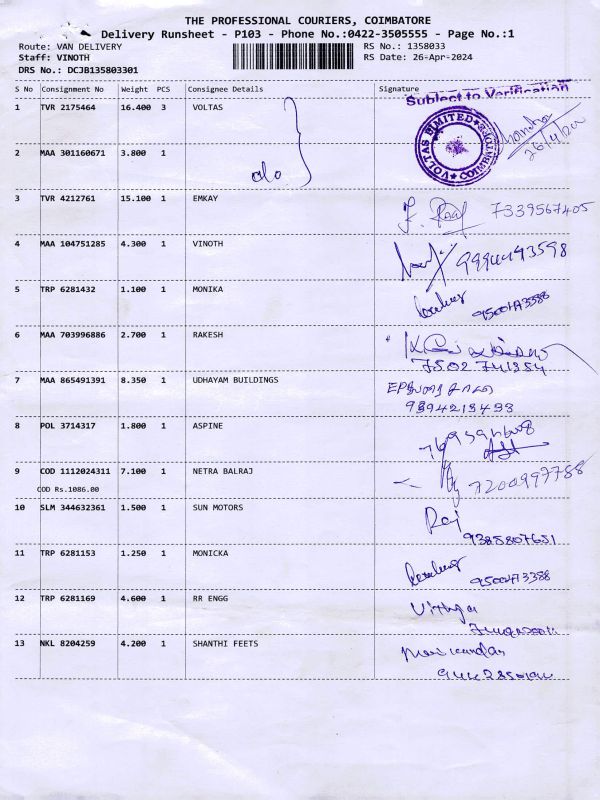 THE PROFESSIONAL COURIERS, COIMBATORE
Delivery Runsheet - P103 - Phone No.:0422-3505555 - Page No.:1
Route: VAN DELIVERY RS No.: 1358033
Staff: VINOTH RS Date: 26-Apr-2024
DRS No.: DCJB135803301
S No Consignment No Weight PCS Consignee Details Signature
Subject to Verification
1 TVR 2175464 16.400 3 VOLTAS
VOLTAS LIMITED COIMBATORE
2 MAA 301160671 3.800 1
do
3 TVR 4212761 15.100 1 EMKAY 7339567405
4 MAA 104751285 4.300 1 VINOTH
5 TRP 6281432 1.100 1 MONIKA
6 MAA 703996886 2.700 1 RAKESH
7 MAA 865491391 8.350 1 UDHAYAM BUILDINGS
8 POL 3714317 1.800 1 ASPINE
9 COD 1112024311 7.100 1 NETRA BALRAJ 7200997788
COD Rs.1086.00
10 SLM 344632361 1.500 1 SUN MOTORS Raj
9385807651
11 TRP 6281153 1.250 1 MONICKA
12 TRP 6281169 4.600 1 RR ENGG Vithya
13 NKL 8204259 4.200 1 SHANTHI FEETS